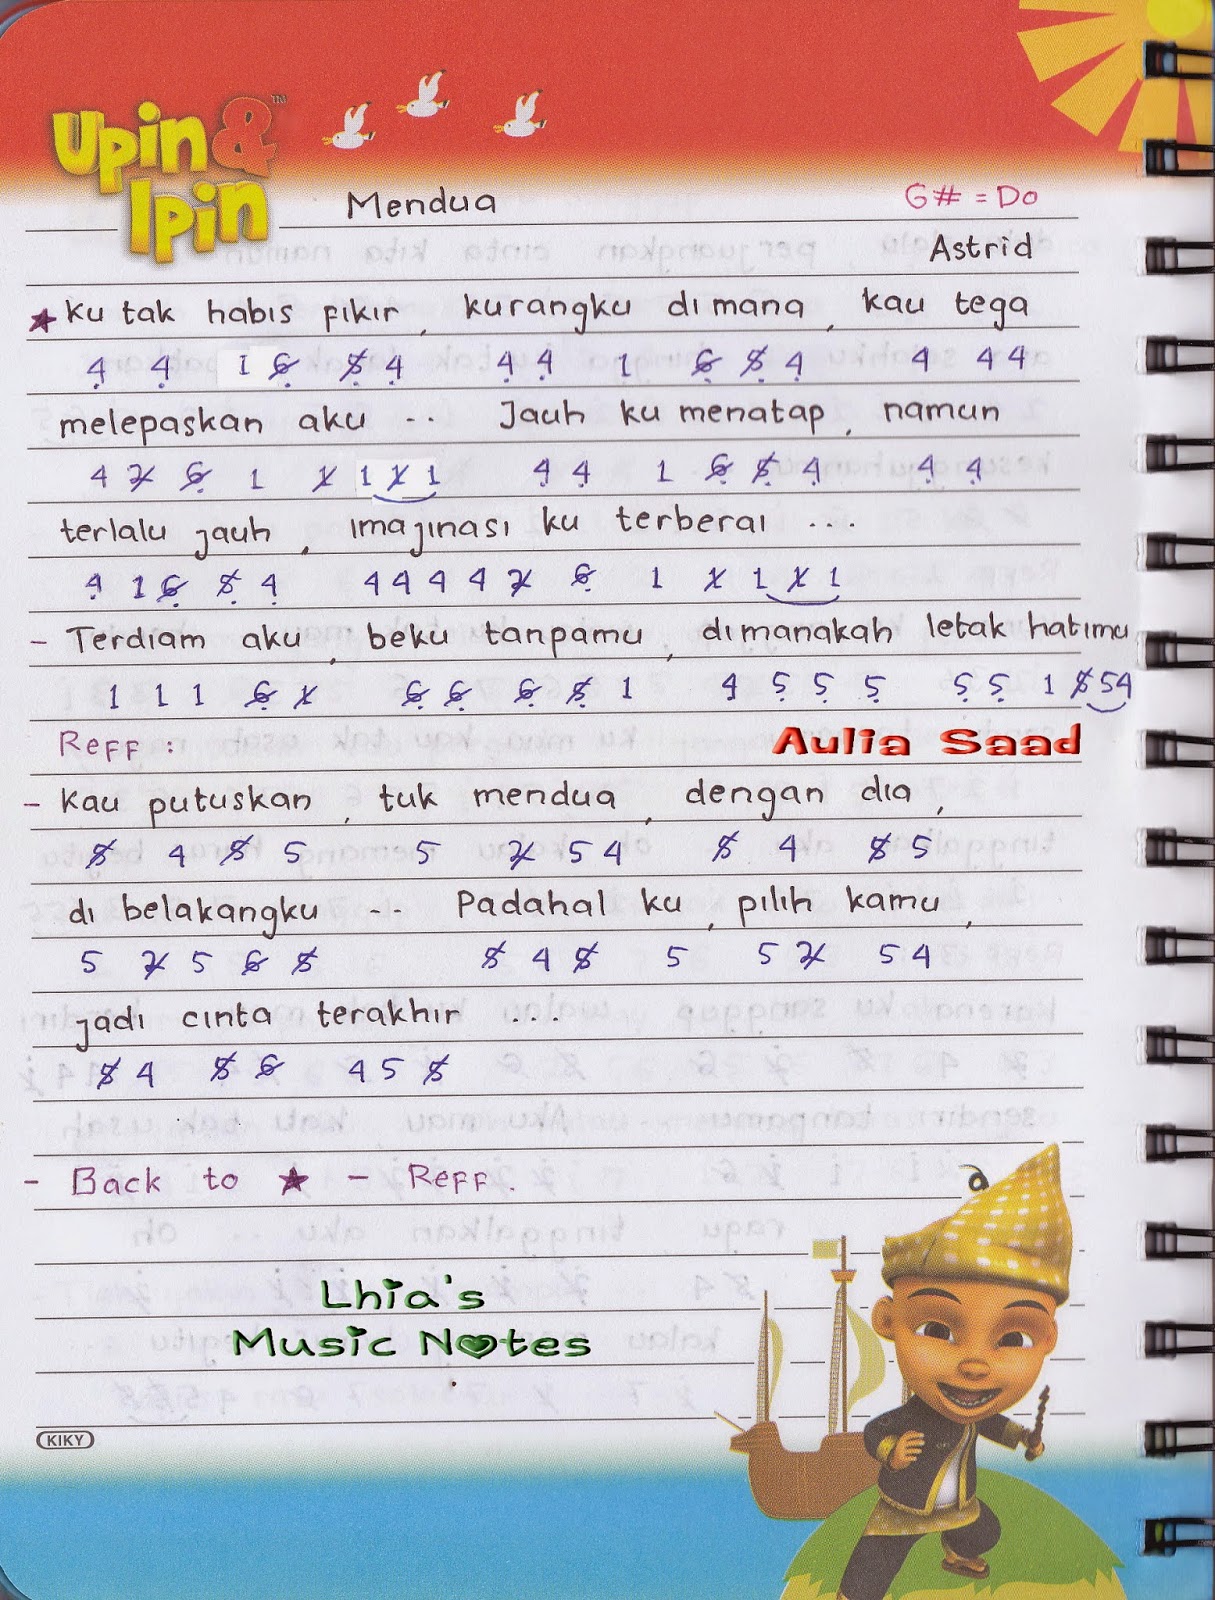 Upin &™
Ipin
Mendua
G# = Do
Astrid
★ Ku tak habis fikir , kurangku dimana , kau tega
4̣ 4̣ 1 6̸̣ 5̸̣ 4̣ 4̣ 4̣ 1 6̸̣ 5̸̣ 4̣ 4 4 4
melepaskan aku .. Jauh ku menatap , namun
4 2̸ 6̸̣ 1 1̸ 1 1̸ 1 4̣ 4̣ 1 6̸̣ 5̸̣ 4̣ 4̣ 4̣
terlalu jauh , imajinasi ku terberai ...
4̣ 1 6̸̣ 5̸̣ 4̣ 4 4 4 4 2̸ 6̸̣ 1 1̸ 1 1̸ 1
- Terdiam aku , beku tanpamu , dimanakah letak hatimu
1 1 1 6̸̣ 1̸ 6̸̣ 6̸̣ 6̸̣ 5̸̣ 1 4̣ 5̣ 5̣ 5̣ 5̣ 5̣ 1 5̸ 5 4
Reff :
Aulia Saad
- Kau putuskan , tuk mendua , dengan dia ,
5̸ 4 5̸ 5 5 2̸ 5 4 5̸ 4 5̸ 5
di belakangku -.. Padahal ku , pilih kamu ,
5 2̸ 5 6̸ 5̸ 5̸ 4 5̸ 5 5 2̸ 5 4
jadi cinta terakhir ...
5̸ 4 5̸ 6̸ 4 5 5̸
- Back to ★ - Reff.
Lhia's
Music Notes
KIKY